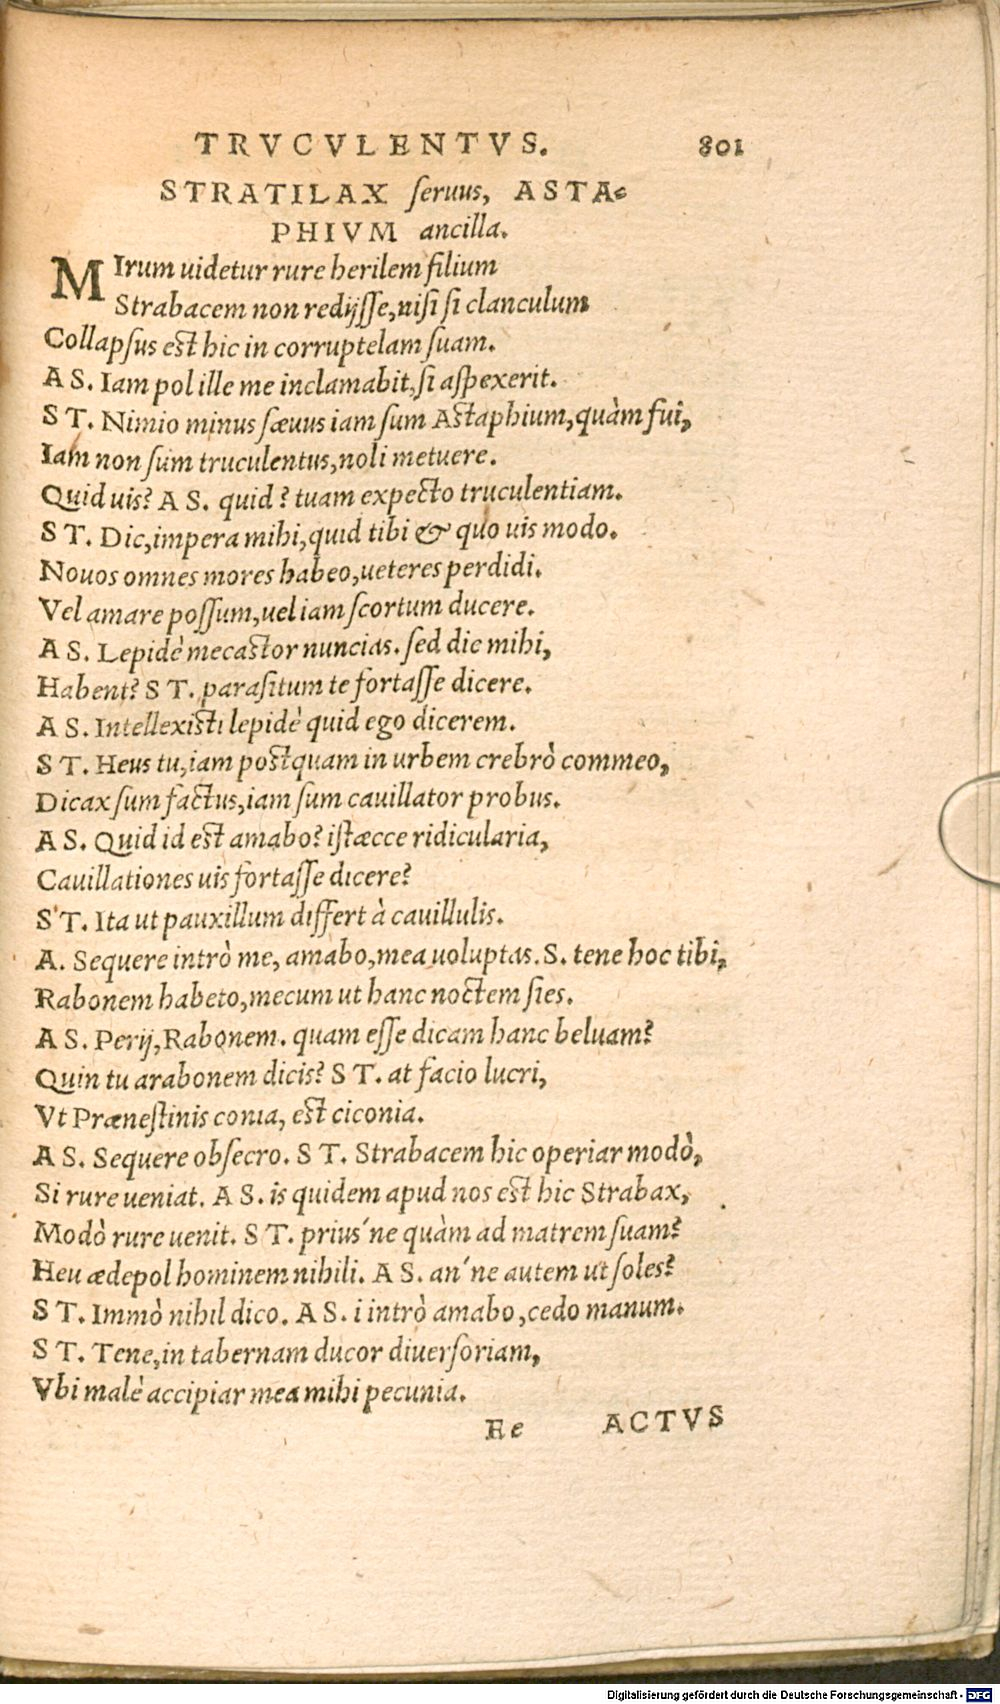 TRVCVLENTVS. 801
STRATILAX seruus, ASTA-
PHIVM ancilla.
MIrum uidetur rure herilem filium
Strabacem non redijsse, nisi si clanculum
Collapsus est hic in corruptelam suam.
A S. Iam pol ille me inclamabit, si aspexerit.
S T. Nimio minus sæuus iam sum Astaphium, quàm fui,
Iam non sum truculentus, noli metuere.
Quid uis? A S. quid? tuam expecto truculentiam.
S T. Dic, impera mihi, quid tibi & quo uis modo.
Nouos omnes mores habeo, ueteres perdidi.
Vel amare possum, uel iam scortum ducere.
A S. Lepidè mecastor nuncias. sed dic mihi,
Habent? S T. parasitum te fortasse dicere.
A S. Intellexisti lepidè quid ego dicerem.
S T. Heus tu, iam postquam in urbem crebrò commeo,
Dicax sum factus, iam sum cauillator probus.
A S. Quid id est amabo? istæcce ridicularia,
Cauillationes uis fortasse dicere?
S T. Ita ut pauxillum differt à cauillulis.
A. Sequere intrò me, amabo, mea uoluptas. S. tene hoc tibi,
Rabonem habeto, mecum ut hanc noctem sies.
A S. Perij, Rabonem. quam esse dicam hanc beluam?
Quin tu arabonem dicis? S T. at facio lucri,
Vt Prænestinis conia, est ciconia.
A S. Sequere obsecro. S T. Strabacem hic operiar modò,
Si rure ueniat. A S. is quidem apud nos est hic Strabax,
Modò rure uenit. S T. prius´ne quàm ad matrem suam?
Heu ædepol hominem nihili. A S. an´ne autem ut soles?
S T. Immò nihil dico. A S. i intrò amabo, cedo manum.
S T. Tene, in tabernam ducor diuersoriam,
Vbi malè accipiar mea mihi pecunia.
Ee ACTVS
Digitalisierung gefördert durch die Deutsche Forschungsgemeinschaft - DFG